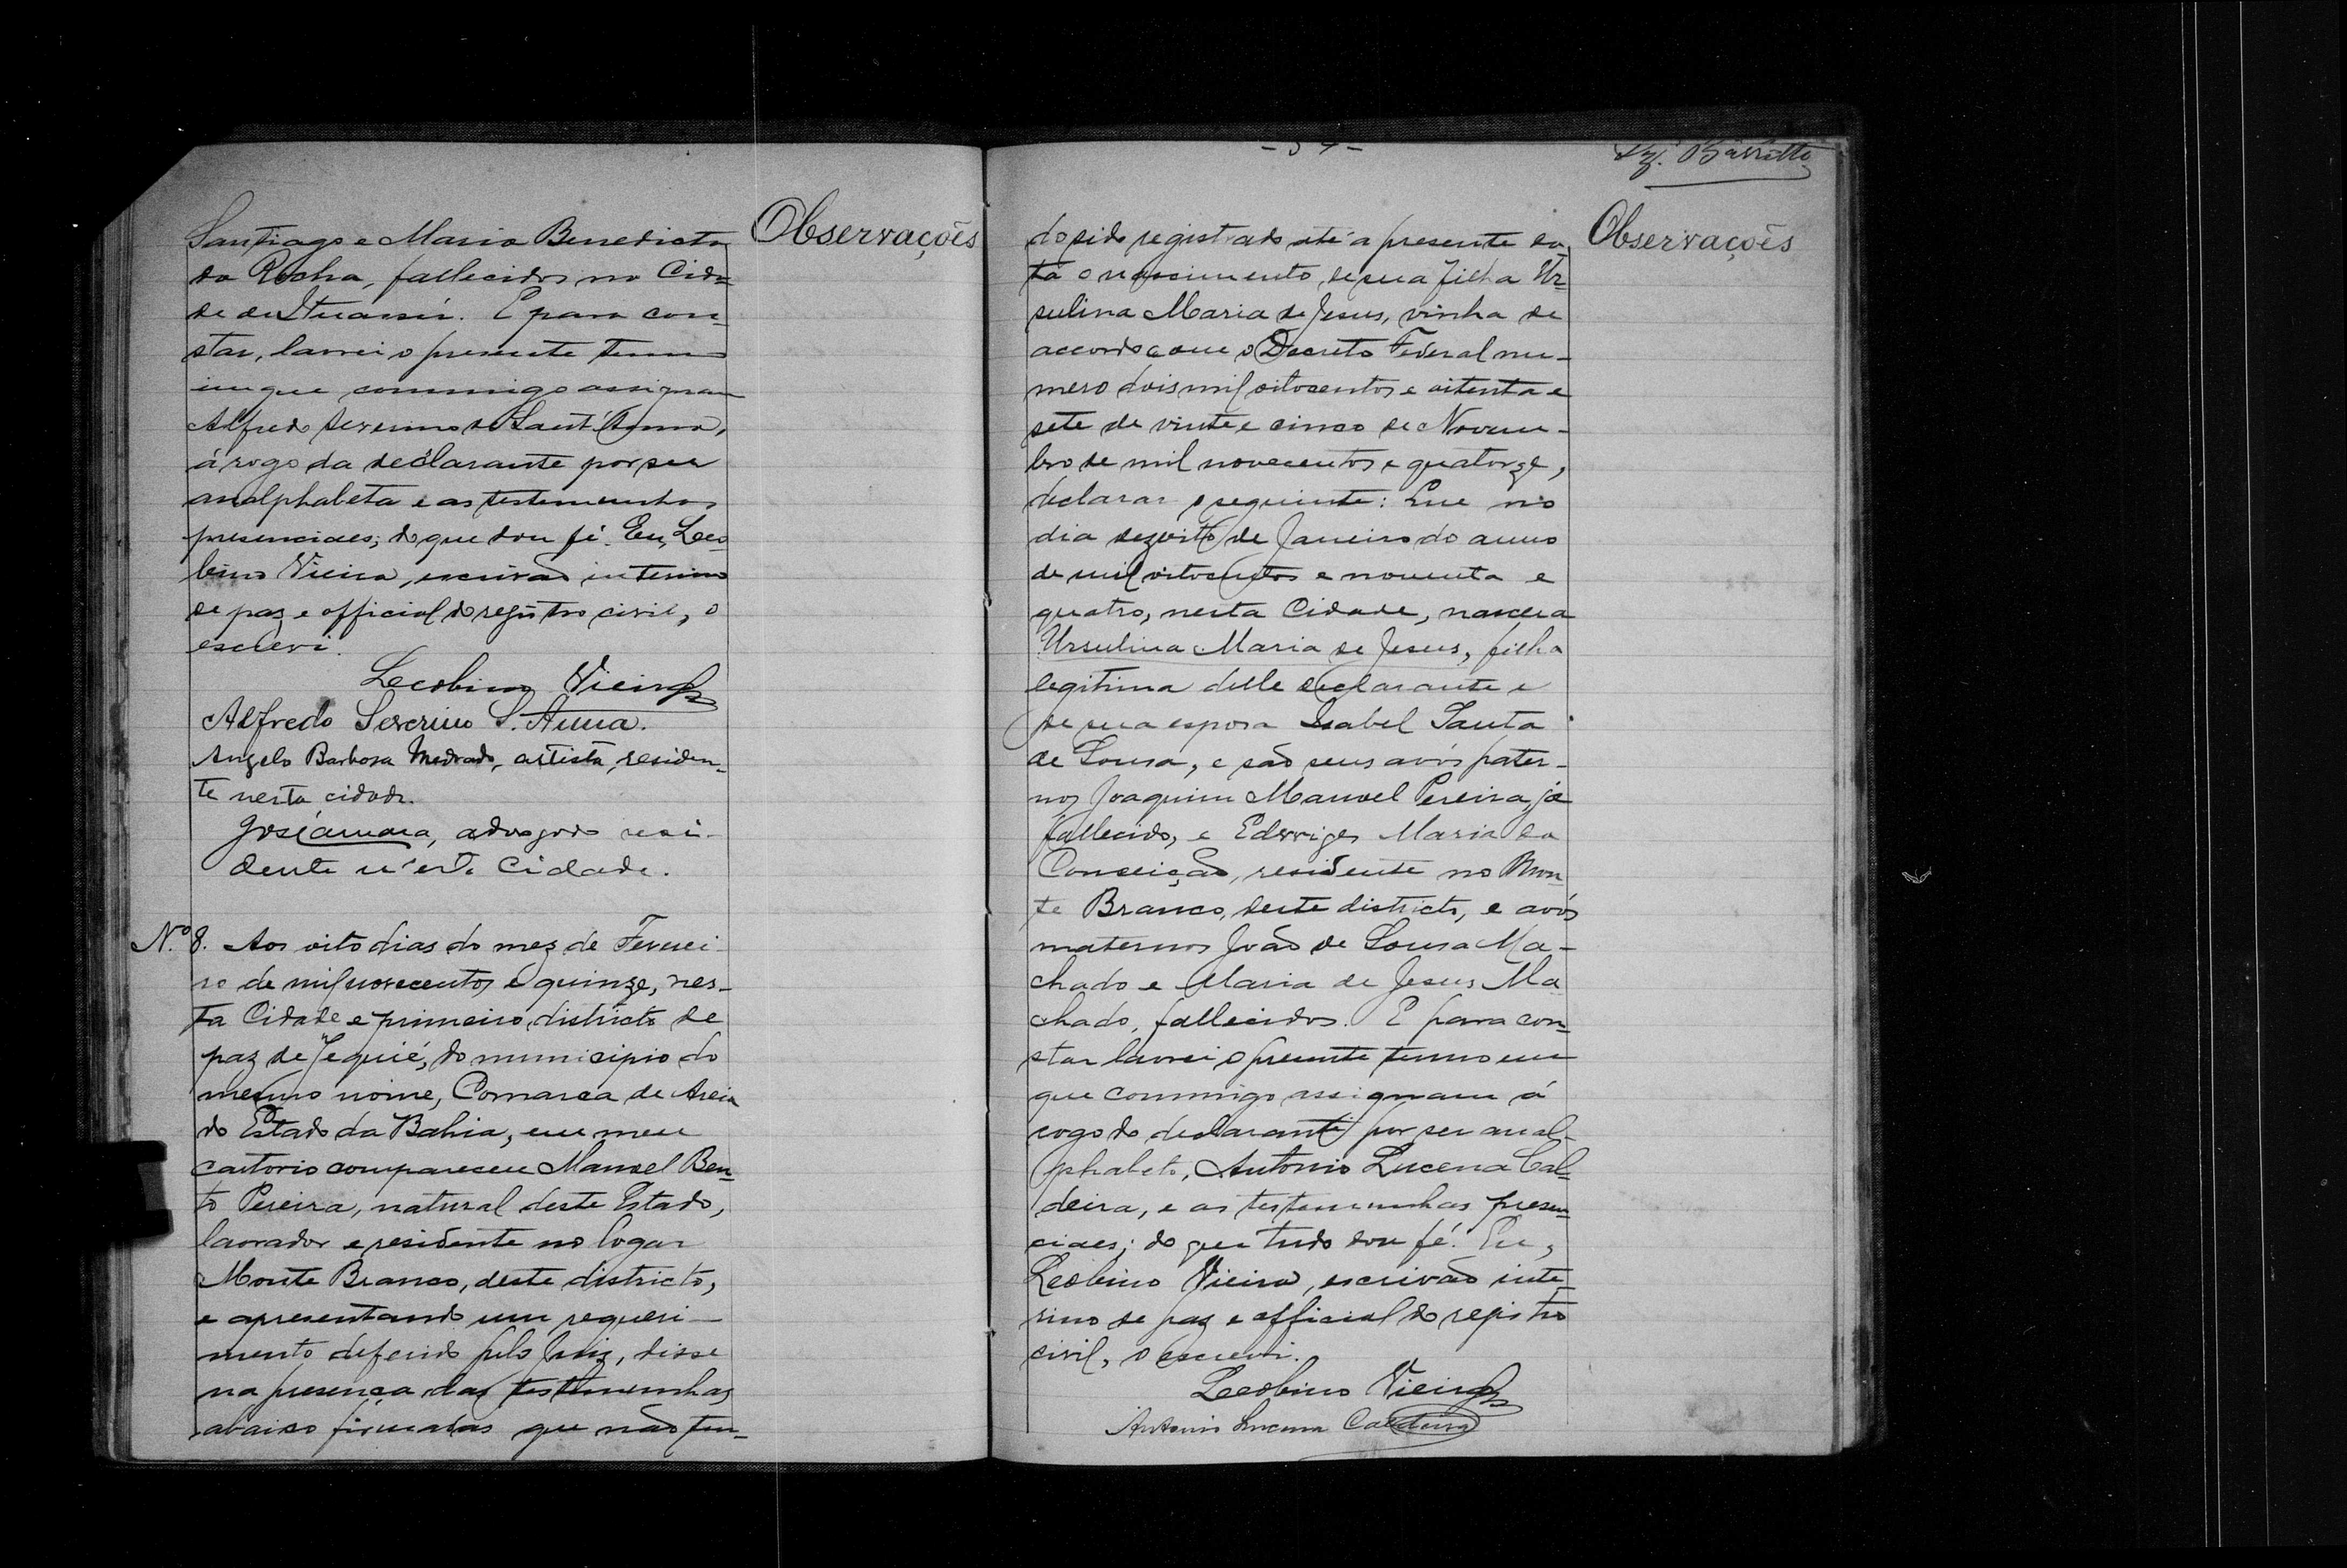 Observações
Santiago e Maria Benedicta
da Rocha, fallecidos na Cida-
de de Ituassú. E para con-
star, lavrei o presente termo
em que commigo assignam
Alfredo Severino de Sant'Anna,
á rogo da declarante por ser
analphabeta e as testemunhas
presenciaes; do que dou fé. Eu, Leo-
bino Vieira, escrivão interino
de paz e official do registro civil, o
escrevi.
Leobino Vieira
Alfredo Severino S. Anna.
Angelo Barbosa Medrado, artista, residen-
te nesta cidade.
advogado resi-
dente n'esta Cidade.
N.º 8. Aos oito dias do mez de Feverei-
ro de mil novecentos e quinze, nes-
ta Cidade e primeiro districto de
paz de Jequié, do municipio do
mesmo nome, Comarca de Areia
do Estado da Bahia, em meu
cartorio compareceu Manoel Ben-
to Pereira, natural deste Estado,
lavrador e residente no logar
Monte Branco, deste districto,
e apresentando um requeri-
mento deferido pelo Juiz, disse
na presença das testemunhas
abaixo firmadas que não ten-
Barretto
Observações
do sido registrado até a presente da-
ta o nascimento de sua filha Ur-
sulina Maria de Jesus, vinha de
accordo com o Decreto Federal nu-
mero dois mil oitocentos e oitenta e
sete de vinte e cinco de Novem-
bro de mil novecentos e quatorze,
declarar o seguinte: Que no
dia dezoito de Janeiro do anno
de mil oitocentos e noventa e
quatro, nesta Cidade, nascera
Ursulina Maria de Jesus, filha
legitima delle declarante e
de sua esposa Isabel Santa
de Sousa, e são seus avós pater-
nos Joaquim Manoel Pereira, já
fallecido, e Edwiges Maria da
Conceição, residente no Mon-
te Branco, deste districto, e avós
maternos João de Sousa Ma-
chado e Maria de Jesus Ma-
chado, fallecidos. E para con-
star lavrei o presente termo em
que commigo assignam á
rogo do declarante por ser anal-
phabeto, Antonio Lucena Cal-
deira, e as testemunhas presen-
ciaes; do que tudo dou fé. Eu,
Leobino Vieira, escrivão inte-
rino de paz e official do registro
civil, o escrevi.
Leobino Vieira
Antonio Lucena Caldeira